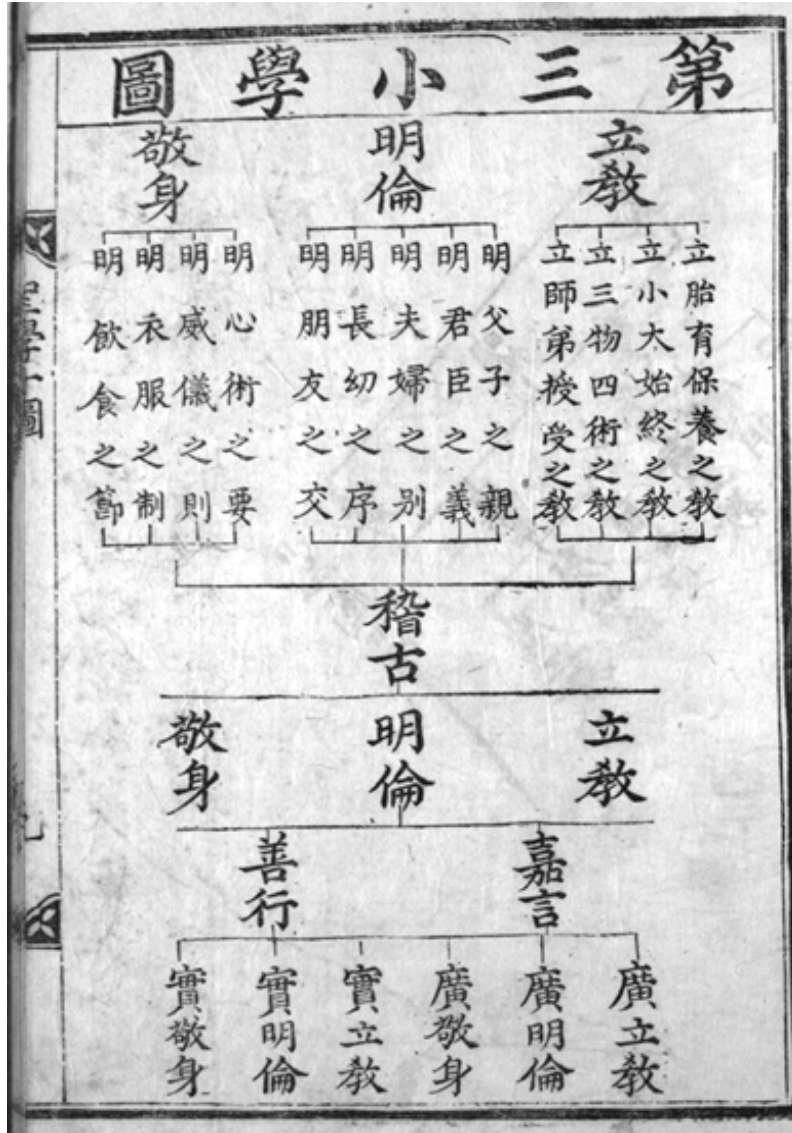 第三小學圖
立教
明倫
敬身
立胎育保養之敎
立小大始終之敎
立三物四術之敎
立師弟授受之敎
明父子之親
明君臣之義
明夫婦之別
明長幼之序
明朋友之交
明心術之要
明威儀之則
明衣服之制
明飮食之節
稽古
立敎
明倫
敬身
嘉言
善行
廣立敎
廣明倫
廣敬身
實立敎
實明倫
實敬身